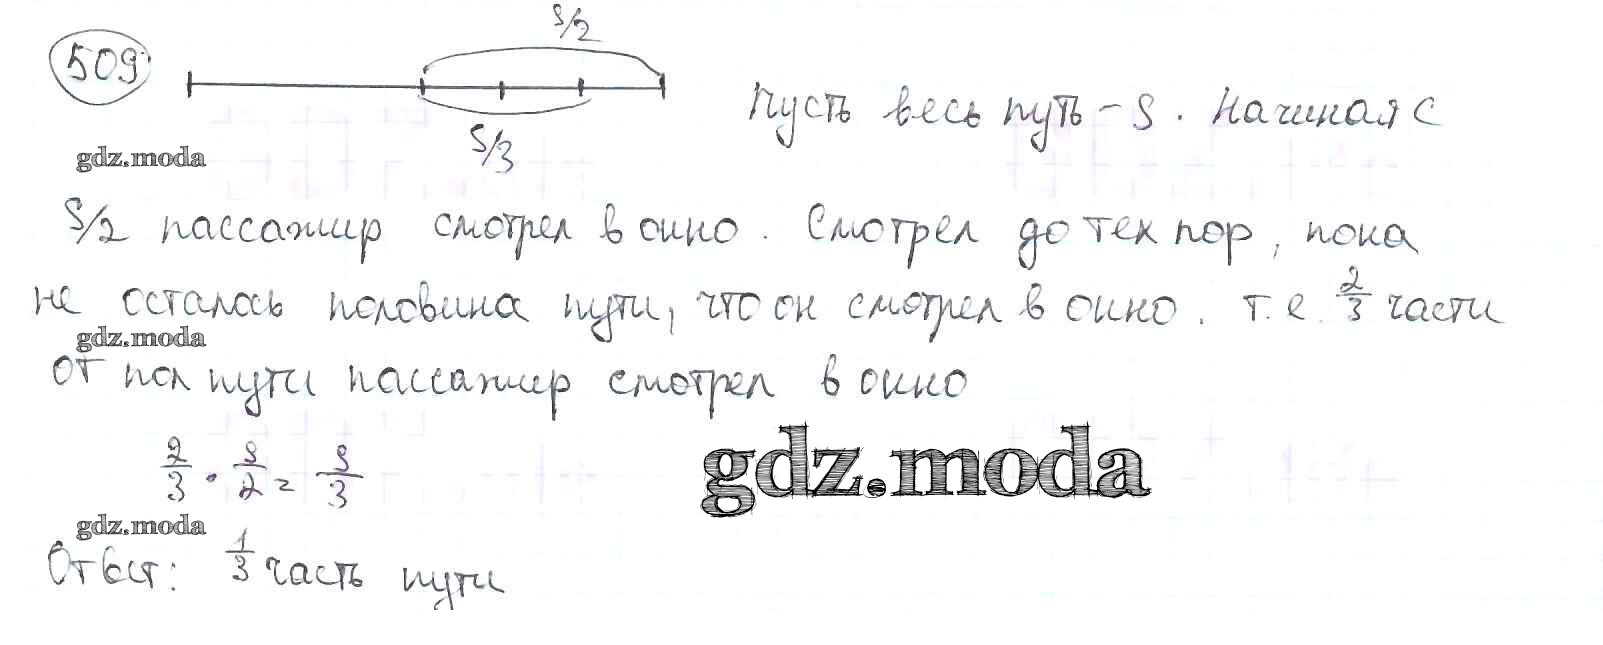 S/2
509
Пусть весь путь - S. Начиная с
S/3
gdz.moda
S/2 пассажир смотрел в окно. Смотрел до тех пор, пока
не осталось половина пути, что он смотрел в окно. т.е. 2/3 части
gdz.moda
от пол пути пассажир смотрел в окно
gdz.moda
2/3 · S/2 = S/3
gdz.moda
Ответ: 1/3 часть пути